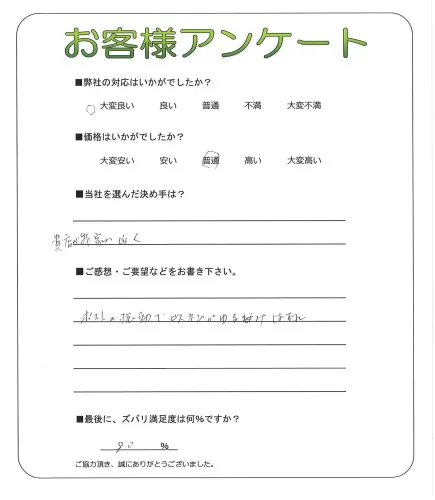 お客様アンケート
■弊社の対応はいかがでしたか？
大変良い 良い 普通 不満 大変不満
■価格はいかがでしたか？
大変安い 安い 普通 高い 大変高い
■当社を選んだ決め手は？
貴店が 近く
■ご感想・ご要望などをお書き下さい。
ポストの振動で ネジがゆる はずれ
■最後に、ズバリ満足度は何%ですか？
90 %
ご協力頂き、誠にありがとうございました。